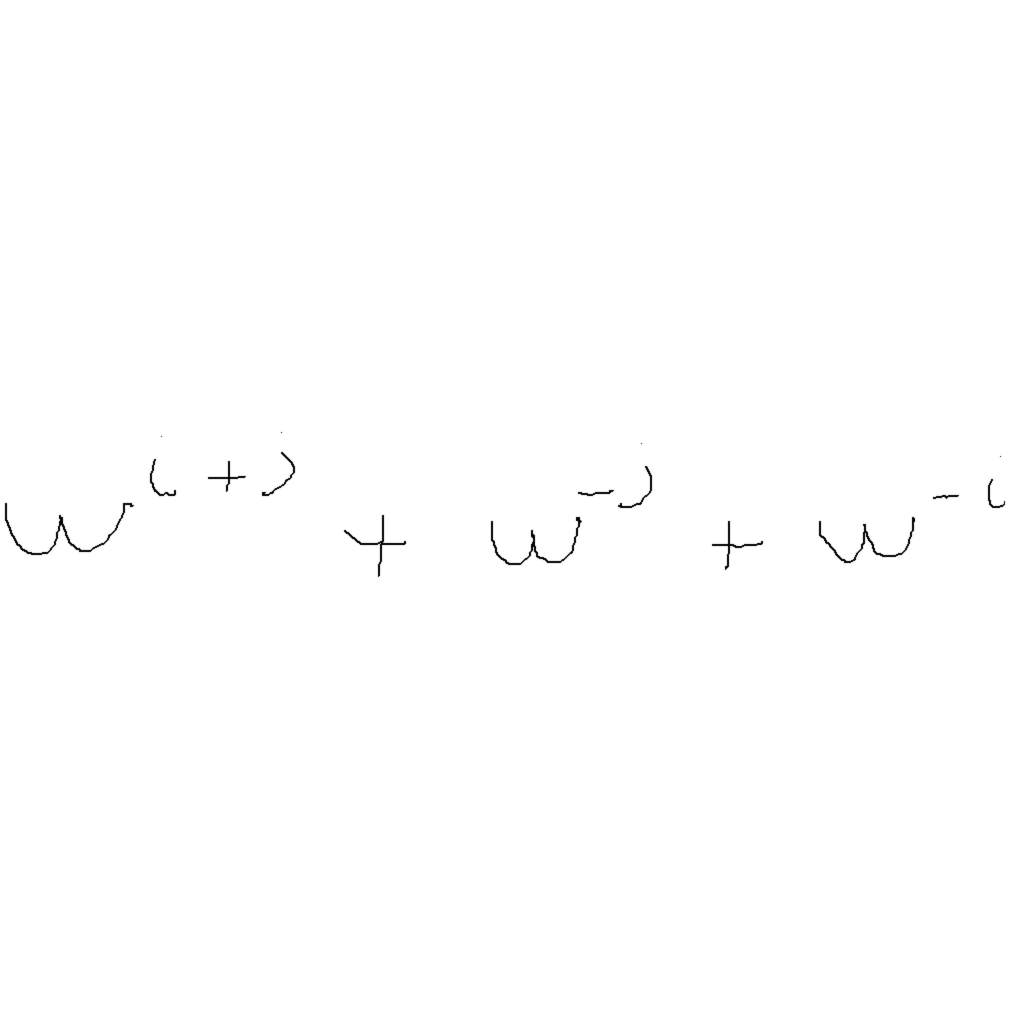 w^{i+j} + w^{-j} + w^{-i}